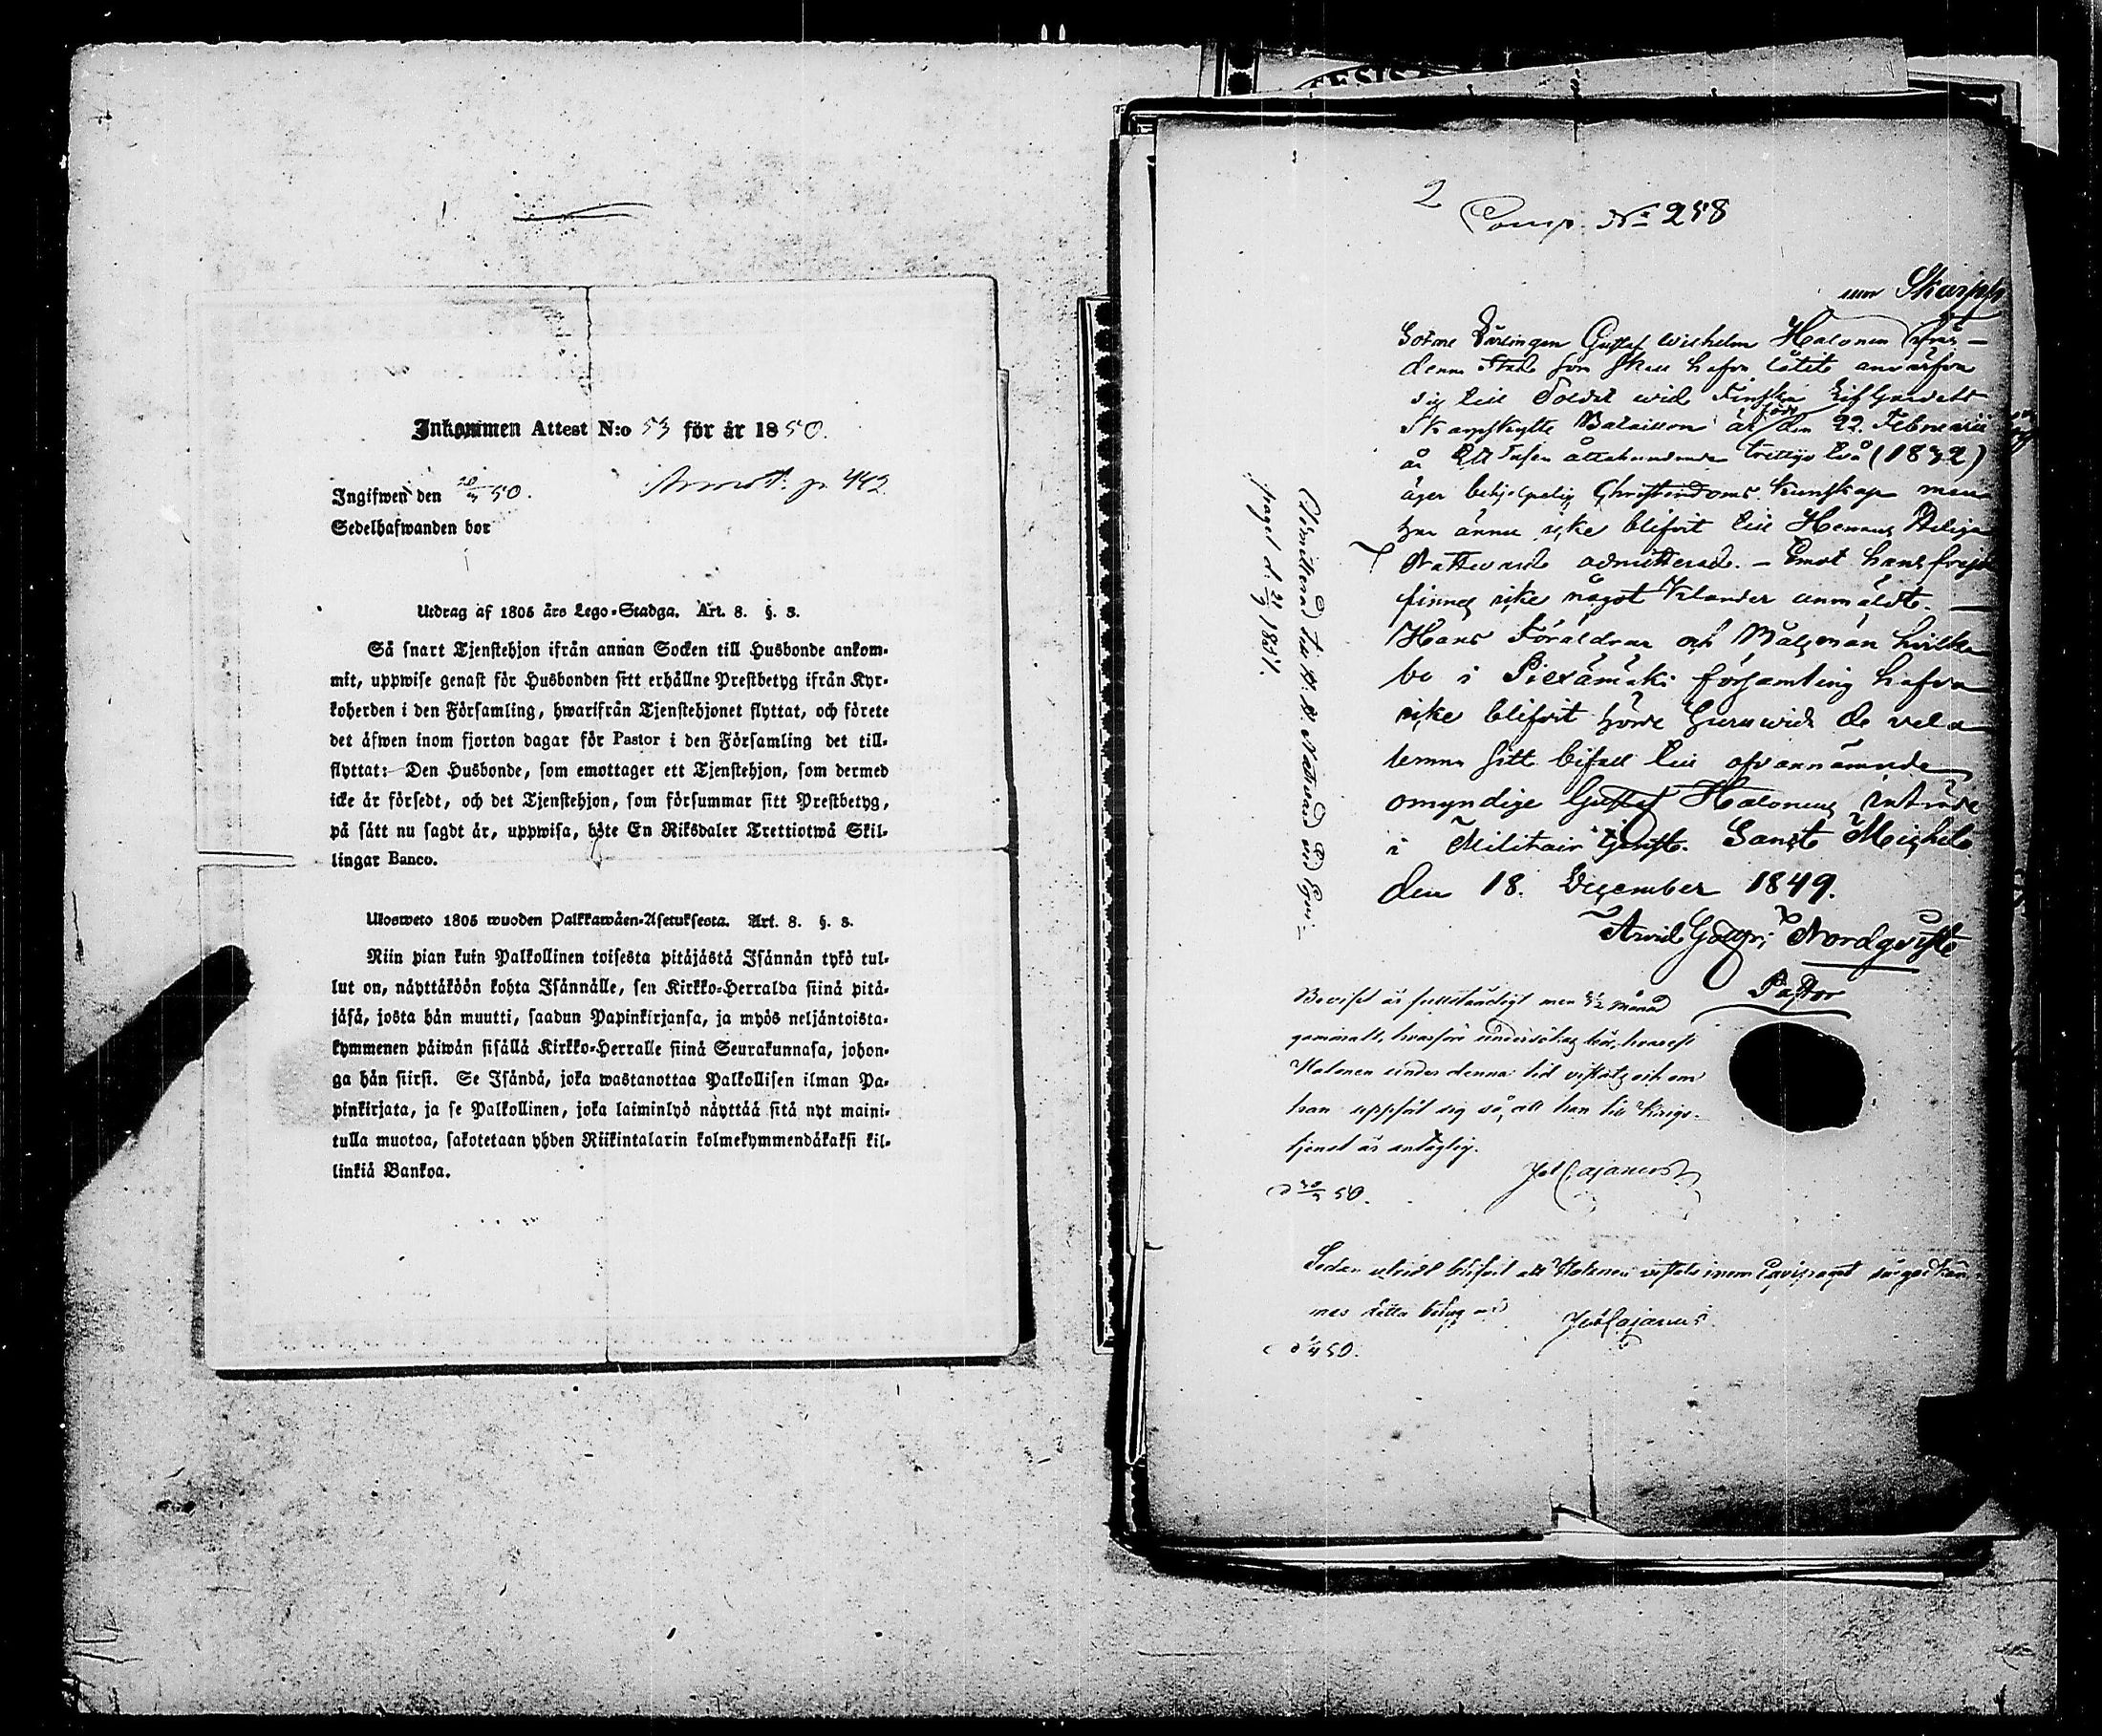 Inkommen Attest N:o 53 för år 1850.
Ingifwen den 20/3 50. Annot. p. 442
Sedelhafwanden bor
Utdrag af 1805 års Lego-Stadga. Art. 8. §. 3.
Så snart Tjenstehjon ifrån annan Socken till Husbonde ankom-
mit, uppwise genast för Husbonden sitt erhållne Prestbetyg ifrån Kyr-
koherden i den Församling, hwarifrån Tjenstehjonet flyttat, och förete
det äfwen inom fjorton dagar för Pastor i den Församling det till-
flyttat: Den Husbonde, som emottager ett Tjenstehjon, som dermed
icke är försedt, och det Tjenstehjon, som försummar sitt Prestbetyg,
på sätt nu sagdt är, uppwisa, böte En Riksdaler Trettiotwå Skil-
lingar Banco.
Ulosweto 1805 wuoden Palkkawäen-Asetuksesta. Art. 8. §. 3.
Niin pian kuin Palkollinen toisesta pitäjästä Isännän tykö tul-
lut on, näyttäköön kohta Isännälle, sen Kirkko-Herralda siinä pitä-
jäsä, josta hän muutti, saadun Papinkirjansa, ja myös neljäntoista-
kymmenen päiwän sisällä Kirkko-Herralle siinä Seurakunnasa, johon-
ga hän siirsi. Se Isändä, joka wastanottaa Palkollisen ilman Pa-
pinkirjata, ja se Palkollinen, joka laiminlyö näyttää sitä nyt maini-
tulla muotoa, sakotetaan yhden Riikintalarin kolmekymmendäkaksi kil-
linkiä Bankoa.
2 Comp. No 258
Skarpp
Gustaf Wilhelm Halonen från
denna Stad som skall hafva låtit anvärfva
sig till Soldat wid Finska Lif Gardets
Skarpskytte Bataillon är född den 22. Februarii
år Ett Tusen åttahundrade trettijo två (1832)
äger behjelpelig Christendoms kunskap men
har ännu icke blifvit till Herrans Heliga
Nattvard admitterad. - Emot hans frejd
finnes icke något klander anmäldt. -
Hans Föräldrar och Målsmän hvilka
bo i Piexämäki församling hafva
icke blifvit hörde huruvida de vela
lemna sitt bifall till ofvannämnde
omyndige Gustaf Halonens inträde
i Militair tjenst. Sanct Michels
den 18. December 1849.
Arvid Gottfr: Nordqvist
Pastor
Admitterad till H. H. Nattvard vid
d. 21/9 1851.
Beviset är fullständigt men 3 1/2 månad
gammalt, hvarföre undersökas bör, hvarest
Halonen under denna tid vistats och om
han uppfört sig så, att han till Krigs-
tjenst är antaglig.
d 20/3 50. Joh Cajanus
Sedan utredt blifvit att Halonen vistats inom
nes detta betyg
d /4 50. Joh Cajanus.